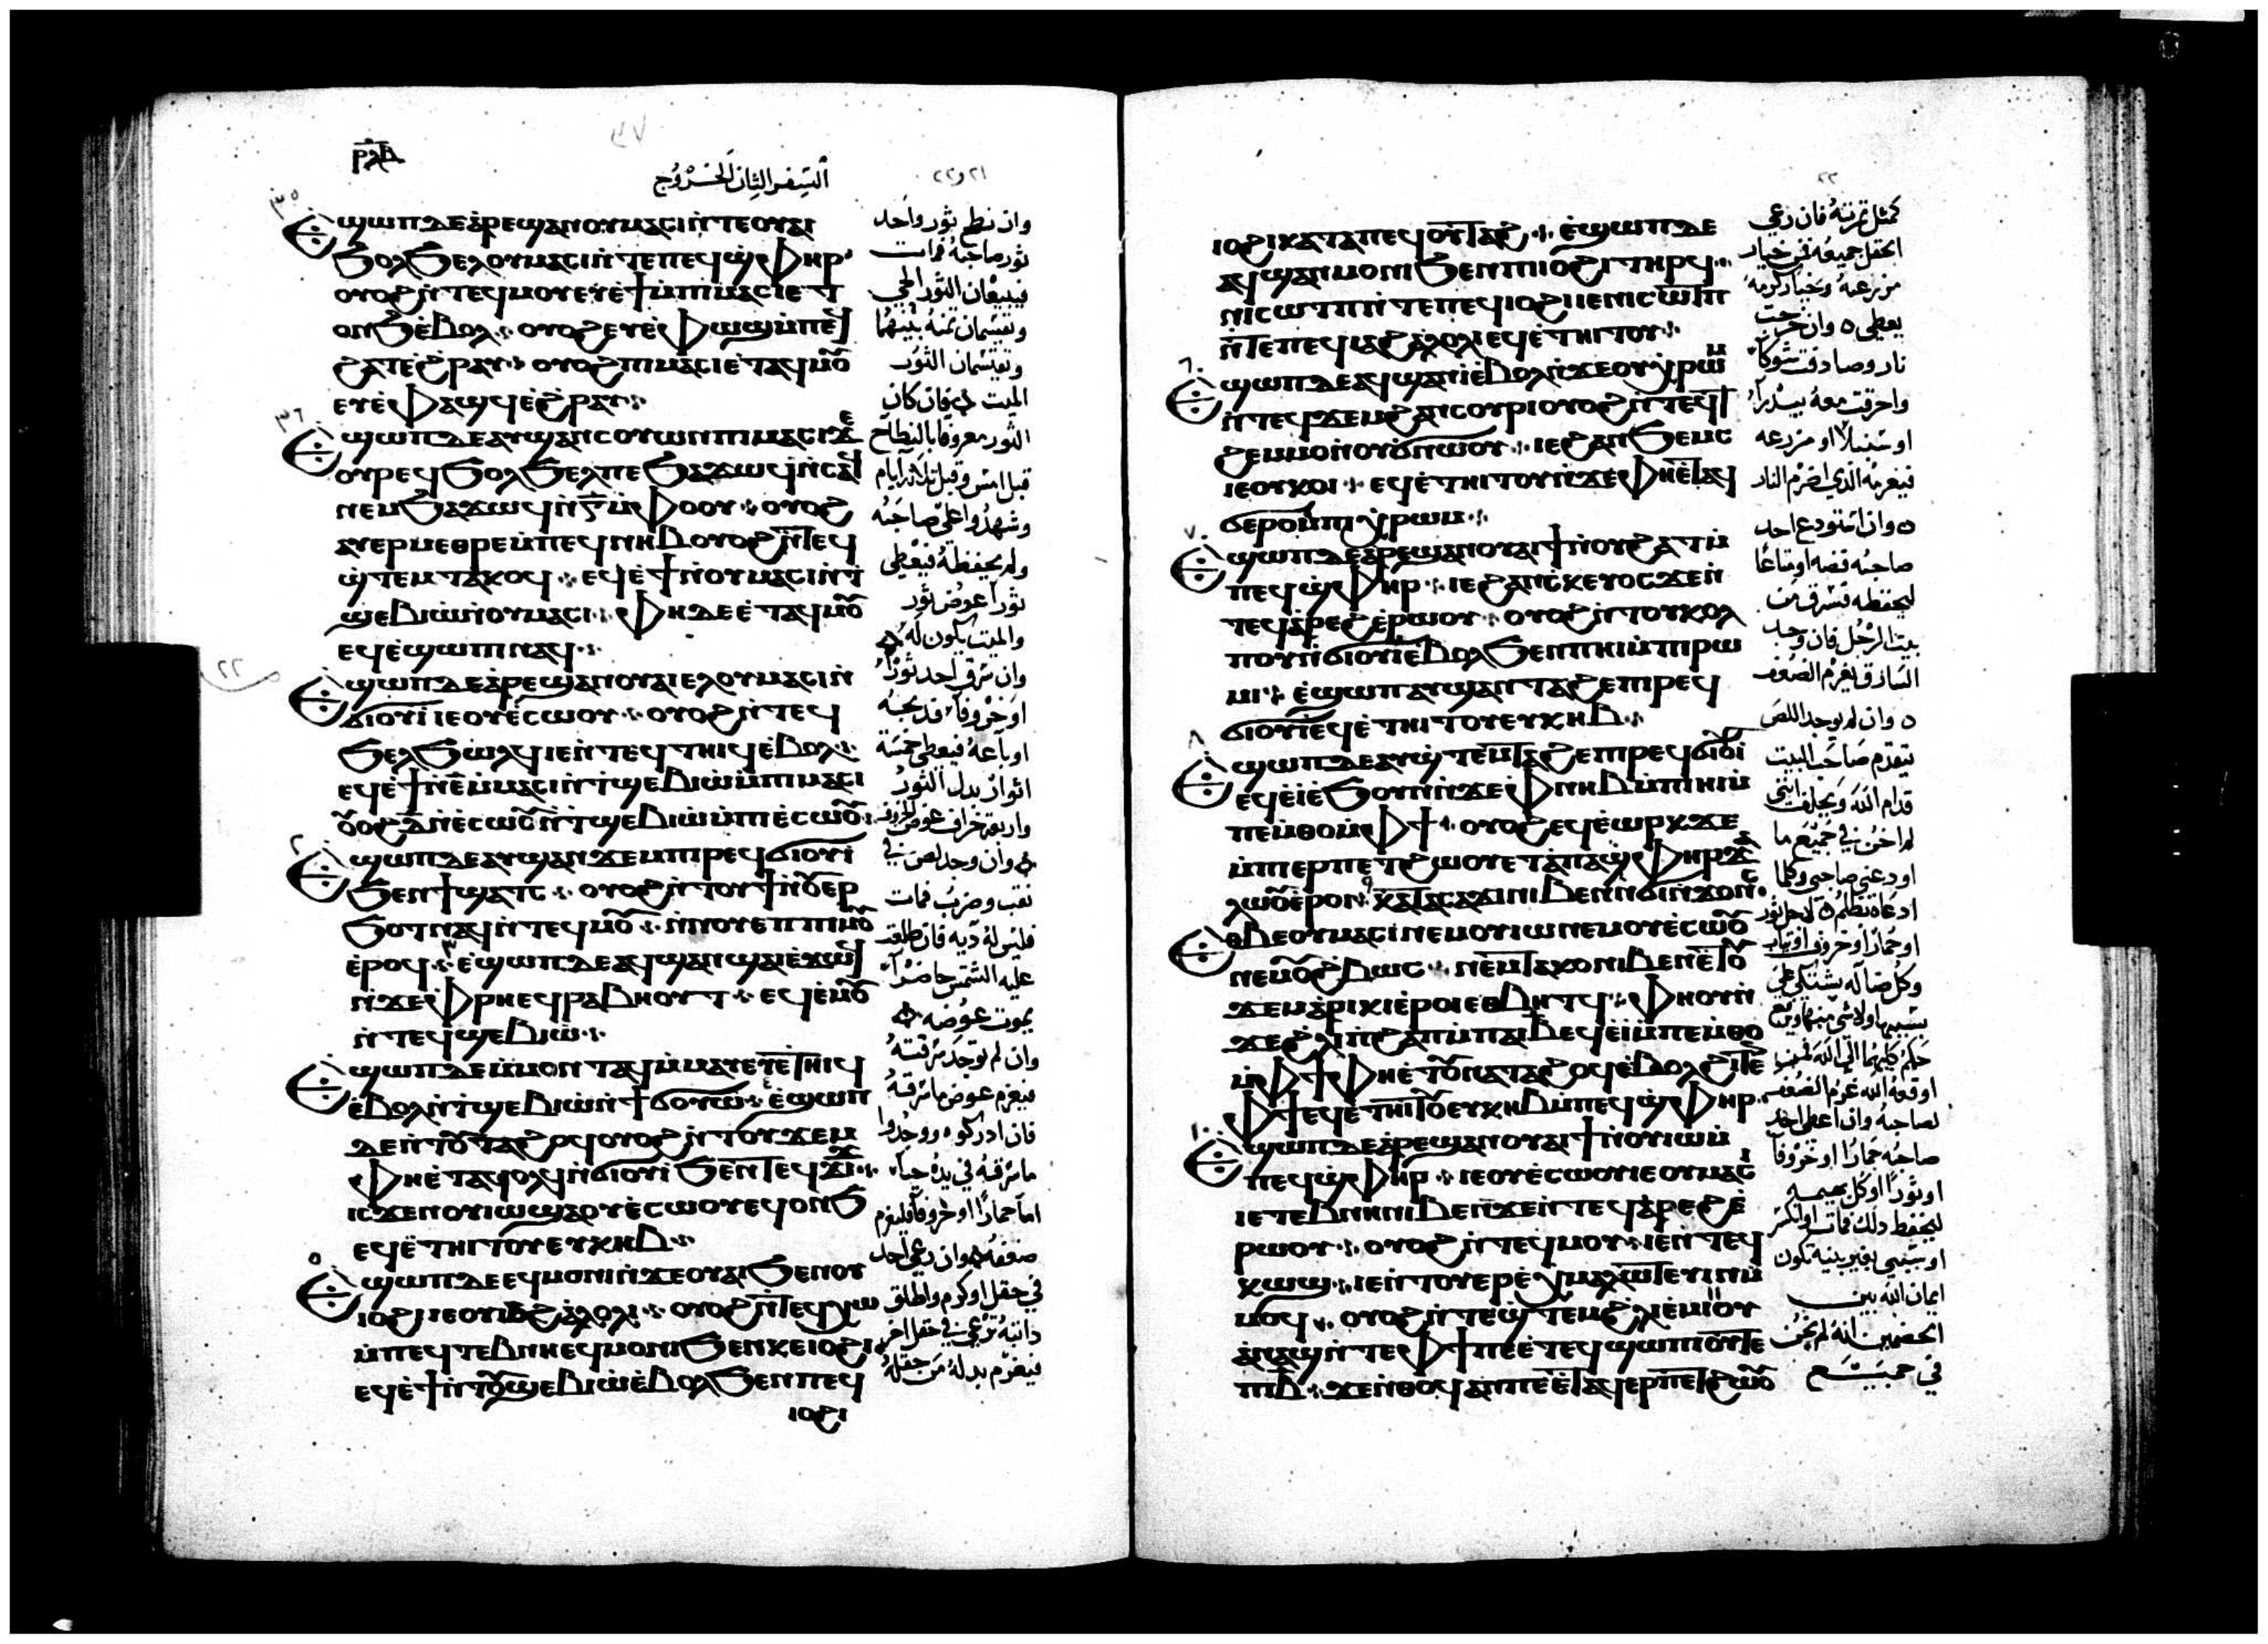 ⲣⲗⲇ
السفر الثاني الخروج
٢١ و٢٢
٣٥
Ⲉϣⲱⲡ ⲇⲉ ⲁⲣⲉϣⲁⲛ ⲟⲩⲙⲁⲥⲓ ⲛⲧⲉ ⲟⲩⲁⲓ
ϧⲟⲗϧⲉⲗ ⲟⲩⲙⲁⲥⲓ ⲛⲧⲉ ⲡⲉϥϣⲫⲏⲣ
ⲟⲩⲟϩ ⲛⲧⲉϥⲙⲟⲩ ⲉⲩⲉϯ ⲙⲡⲓⲙⲁⲥⲓ ⲉⲧ
ⲟⲛϧ ⲉⲃⲟⲗ ⲟⲩⲟϩ ⲉⲩⲉⲫⲱϣ ⲙⲡⲉϥ
ϩⲁⲧ ⲉϩⲣⲁⲩ ⲟⲩⲟϩ ⲡⲓⲙⲁⲥⲓ ⲉⲧⲁϥⲙⲟⲩ
ⲉⲩⲉⲫⲁϣϥ ⲉϩⲣⲁⲩ
٣٦
Ⲉϣⲱⲡ ⲇⲉ ⲁⲩϣⲁⲛⲥⲟⲩⲱⲛ ⲡⲓⲙⲁⲥⲓ ϫⲉ
ⲟⲩⲣⲉϥϧⲟⲗϧⲉⲗ ⲡⲉ ϧⲁϫⲱϥ ⲛⲥⲁϥ
ⲛⲉⲙ ϧⲁϫⲱϥ ⲛⲅ ⲛⲉϩⲟⲟⲩ ⲟⲩⲟϩ
ⲁⲩⲉⲣⲙⲉⲑⲣⲉ ⲙⲡⲉϥⲛⲏⲃ ⲟⲩⲟϩ ⲛⲧⲉϥ
ϣⲧⲉⲙⲧⲁⲕⲟϥ ⲉϥⲉϯ ⲛⲟⲩⲙⲁⲥⲓ ⲛⲧ
ϣⲉⲃⲓⲱ ⲛⲟⲩⲙⲁⲥⲓ ⲫⲏ ⲇⲉ ⲉⲧⲁϥⲙⲟⲩ
ⲉϥⲉϣⲱⲡⲓ ⲛⲁϥ
٢٢
Ⲉϣⲱⲡ ⲇⲉ ⲁⲣⲉϣⲁⲛ ⲟⲩⲁⲓ ⲉⲗ ⲟⲩⲙⲁⲥⲓ ⲛ
ϭⲓⲟⲩⲓ ⲓⲉ ⲟⲩⲉⲥⲱⲟⲩ ⲟⲩⲟϩ ⲛⲧⲉϥ
ϧⲉⲗϧⲱⲗϥ ⲓⲉ ⲛⲧⲉϥⲧⲏⲓϥ ⲉⲃⲟⲗ
ⲉϥⲉϯ ⲛⲉ ⲙⲙⲁⲥⲓ ⲛⲧϣⲉⲃⲓⲱ ⲙⲡⲓⲙⲁⲥⲓ
ⲟⲩⲟϩ ⲇ ⲛⲉⲥⲱⲟⲩ ⲛⲧϣⲉⲃⲓⲱ ⲙⲡⲓⲉⲥⲱⲟⲩ
٢
Ⲉϣⲱⲡ ⲇⲉ ⲁⲩϣⲁⲛϫⲉⲙ ⲡⲓⲣⲉϥϭⲓⲟⲩⲓ
ϧⲉⲛ ϯϣⲁⲧⲥ ⲟⲩⲟϩ ⲛⲧⲟⲩϯ ⲛⲟⲩⲉⲣ
ϧⲟⲧ ⲛⲁϥ ⲛⲧⲉϥⲙⲟⲩ ⲛⲛⲟⲩⲉⲡ ⲡⲓⲙⲟⲩ
ⲉⲣⲟϥ ٣ ⲉϣⲱⲡ ⲇⲉ ⲁϥϣⲁⲛϣⲁⲓ ⲉϫⲱϥ
ⲛϫⲉ ⲫⲣⲏ ⲉϥⲣⲁⲃⲏⲟⲩⲧ ⲉϥⲉⲙⲟⲩ
ⲛⲧⲉϥϣⲉⲃⲓⲱ
Ⲉϣⲱⲡ ⲇⲉ ⲙⲙⲟⲛⲧⲁϥ ⲙⲙⲁⲩ ⲉⲩⲉⲧⲏⲓϥ
ⲉⲃⲟⲗ ⲛⲧϣⲉⲃⲓⲱ ⲛϯϭⲟⲩⲱ ٤ ⲉϣⲱⲡ
ⲇⲉ ⲛⲧⲟⲩⲧⲁϩⲟϥ ⲟⲩⲟϩ ⲛⲧⲟⲩϫⲉⲙ
ⲫⲏ ⲉⲧⲁϥⲟⲗϥ ⲛϭⲓⲟⲩⲓ ϧⲉⲛ ⲧⲉϥϫⲓϫ
ⲓⲥϫⲉⲛ ⲟⲩⲓⲱ ϣⲁ ⲟⲩⲉⲥⲱⲟⲩ ⲉϥⲟⲛϧ
ⲉϥⲉⲧⲏⲓⲧⲟⲩ ⲉⲩⲕⲏⲃ
٥
Ⲉϣⲱⲡ ⲇⲉ ⲉϥⲙⲟⲛⲓ ⲛϫⲉ ⲟⲩⲁⲓ ϧⲉⲛ ⲟⲩ
ⲓⲟϩⲓ ⲓⲉ ⲟⲩⲓⲁϩⲁⲗⲟⲗⲓ ⲟⲩⲟϩ ⲛⲧⲉϥⲭⲱ
ⲙⲡⲉϥⲧⲉⲃⲛⲏ ⲉϥⲙⲟⲛⲓ ϧⲉⲛ ⲕⲉⲓⲟϩⲓ
ⲉϥⲉϯ ⲛⲧⲟⲩϣⲉⲃⲓⲱ ⲉⲃⲟⲗ ϧⲉⲛ ⲡⲉϥ
ⲓⲟϩⲓ
وان نطح ثور واحد
ثور صاحبه فمات
فيبيعان الثور الحي
ويقتسمان ثمنه بينهما
ويقتسمان الثور
الميت فان كان
الثور معروفا بالنطاح
قبل امس وقبل ثلاثة ايام
وشهدوا على صاحبه
ولم يحفظه فيعطي
ثورا عوض ثور
والميت يكون له
وان سرق احد ثورا
او خروفا فذبحه
او باعه فيعطي خمسة
اثوار بدل الثور
واربعة خراف عوض الخروف
وان وجد لص في
نقب وضرب فمات
فليس له دية فان طلعت
عليه الشمس حاضرا
يموت عوضه
وان لم توجد سرقته
فيغرم عوض ما سرقه
فان ادركوه ووجدوا
ما سرقه في يده حيا
اما حمارا او خروفا فليغرم
ضعفه وان رعى احد
في حقل او كرم واطلق
دابته ترعى في حقل اخر
فيغرم بدله من حقله
٢٢
ⲓⲟϩⲓ ⲕⲁⲧⲁ ⲡⲉϥⲟⲩⲧⲁϩ ⲉϣⲱⲡ ⲇⲉ
ⲁϥϣⲁⲛⲙⲟⲛⲓ ϧⲉⲛ ⲡⲓⲓⲟϩⲓ ⲧⲏⲣϥ
ⲛⲓⲥⲱⲧⲡ ⲛⲧⲉ ⲡⲉϥⲓⲟϩⲓ ⲓⲉ ⲛⲓⲥⲱⲧⲡ
ⲛⲧⲉ ⲡⲉϥⲓⲁϩⲁⲗⲟⲗⲓ ⲉϥⲉⲧⲏⲓⲧⲟⲩ
٦
Ⲉϣⲱⲡ ⲇⲉ ⲁϥϣⲁⲛⲓ ⲉⲃⲟⲗ ⲛϫⲉ ⲟⲩⲭⲣⲱⲙ
ⲛⲧⲉϥϫⲉⲙ ϩⲁⲛⲥⲟⲩⲣⲓ ⲟⲩⲟϩ ⲛⲧⲉϥ
ϩⲉⲙ ⲛⲟⲩϭⲛⲱⲟⲩ ⲓⲉ ϩⲁⲛϧⲉⲙⲥ
ⲓⲉ ⲟⲩⲕⲟⲓ ⲉϥⲉⲧⲏⲓⲧⲟⲩ ⲛϫⲉ ⲫⲏ ⲉⲧⲁϥ
ϭⲉⲣⲟ ⲙⲡⲓⲭⲣⲱⲙ
٧
Ⲉϣⲱⲡ ⲇⲉ ⲁⲣⲉϣⲁⲛ ⲟⲩⲁⲓ ϯ ⲛⲟⲩϩⲁⲧ ⲙ
ⲡⲉϥϣⲫⲏⲣ ⲓⲉ ϩⲁⲛⲥⲕⲉⲩⲟⲥ ϫⲉ ⲛ
ⲧⲉϥⲁⲣⲉϩ ⲉⲣⲱⲟⲩ ⲟⲩⲟϩ ⲛⲧⲟⲩⲕⲟⲗ
ⲡⲟⲩ ⲛϭⲓⲟⲩⲓ ⲉⲃⲟⲗ ϧⲉⲛ ⲡⲏⲓ ⲙⲡⲓⲣⲱ
ⲙⲓ ⲉϣⲱⲡ ⲁⲩϣⲁⲛⲧⲁϩⲉ ⲡⲓⲣⲉϥ
ϭⲓⲟⲩⲓ ⲉϥⲉⲧⲏⲓⲧⲟⲩ ⲉⲩⲕⲏⲃ
٨
Ⲉϣⲱⲡ ⲇⲉ ⲁⲩϣⲧⲉⲙⲧⲁϩⲉ ⲡⲓⲣⲉϥϭⲓⲟⲩⲓ
ⲉϥⲉⲓ ⲉϧⲟⲩⲛ ⲛϫⲉ ⲫⲛⲏⲃ ⲙⲡⲏⲓ ⲙ
ⲡⲉⲙⲑⲟ ⲙⲫϯ ⲟⲩⲟϩ ⲉϥⲉⲱⲣⲕ ϫⲉ
ⲙⲡⲉⲣⲡⲉⲧϩⲱⲟⲩ ⲉⲧⲁ ⲡⲁϣⲫⲏⲣ ⲭⲁ
ⲗⲱⲟⲩ ⲉⲣⲟⲛ ٩ ⲕⲁⲧⲁ ⲥⲁϫⲓ ⲛⲓⲃⲉⲛ ⲛϭⲓⲛϫⲟⲛⲥ
Ⲉⲑⲃⲉ ⲟⲩⲙⲁⲥⲓ ⲛⲉⲙ ⲟⲩⲓⲱ ⲛⲉⲙ ⲟⲩⲉⲥⲱⲟⲩ
ⲛⲉⲙ ⲟⲩϩⲃⲱⲥ ⲛⲉⲙ ⲧⲁⲕⲟ ⲛⲓⲃⲉⲛ ⲉⲧⲟⲩ
ϫⲉⲙ ⲁⲣⲓⲕⲓ ⲉⲣⲟⲓ ⲉⲑⲃⲏⲧϥ ⲫⲏ ⲟⲩⲛ
ϫⲉ ϩⲗⲓ ⲡⲉ ⲡϩⲁⲡ ⲙⲡⲁⲓⲃ ⲉϥⲉⲓ ⲙⲡⲉⲙⲑⲟ
ⲙⲫϯ ⲫⲏ ⲉⲧⲟⲩⲛⲁⲧⲁϩⲟϥ ⲉⲃⲟⲗ ϩⲓⲧⲉⲛ
ⲫϯ ⲉϥⲉⲧⲏⲓⲧⲟⲩ ⲉⲩⲕⲏⲃ ⲙⲡⲉϥϣⲫⲏⲣ
١٠
Ⲉϣⲱⲡ ⲇⲉ ⲁⲣⲉϣⲁⲛ ⲟⲩⲁⲓ ϯ ⲛⲟⲩⲓⲱ ⲙ
ⲡⲉϥϣⲫⲏⲣ ⲓⲉ ⲟⲩⲉⲥⲱⲟⲩ ⲓⲉ ⲟⲩⲙⲁⲥⲓ
ⲓⲉ ⲧⲉⲃⲛⲏ ⲛⲓⲃⲉⲛ ϫⲉ ⲛⲧⲉϥⲁⲣⲉϩ ⲉ
ⲣⲱⲟⲩ ⲟⲩⲟϩ ⲛⲧⲉϥⲙⲟⲩ ⲓⲉ ⲛⲧⲉϥ
ϧⲱϣ ⲓⲉ ⲛⲧⲟⲩⲉⲣⲉⲭⲙⲁⲗⲱⲧⲉⲩⲓⲛ ⲙ
ⲙⲟϥ ⲟⲩⲟϩ ⲛⲧⲉϣⲧⲉⲙ ϩⲗⲓ ⲉⲙⲓ ⲉⲣⲟⲩ
ⲁⲛⲁϣ ⲛⲧⲉ ⲫϯ ⲡⲉ ⲉⲧⲉϥϣⲱⲡⲓ ⲟⲩⲧⲉ
ⲡⲓⲃ ϫⲉ ⲛⲑⲟϥ ⲁⲛ ⲡⲉ ⲉⲧⲁϥⲉⲣⲡⲉⲧϩⲱⲟⲩ
كمثل ثمرته فان رعى
الحقل جميعه فمن خيار
مزرعته وخيار كرمه
يعطي وان خرجت
نار وصادفت شوكا
واحرقت معه بيدرا
او سنبلا او مزرعه
فيغرمه الذي اضرم النار
وان استودع احد
صاحبه فضه او متاعا
ليحفظه فسرق من
بيت الرجل فان وجد
السارق يغرم الضعف
وان لم يوجد اللص
يتقدم صاحب البيت
قدام الله ويحلف انني
لم اخن في جميع ما
اودعني صاحبي وكلما
ادعاه بظلم لاجل ثور
او حمار او خروف او ثياب
وكل ضاله يشتكى علي
حكم كليهما الى الله فمن
اوقعه الله غرم الضعف
لصاحبه وان اعطى احد
صاحبه حمارا او خروفا
او ثورا او كل بهيمه
ليحفظ ذلك فمات او انكسر
او سبي بغير بينه تكون
ايمان الله بين
الخصمين انه لم يخن
في جميع